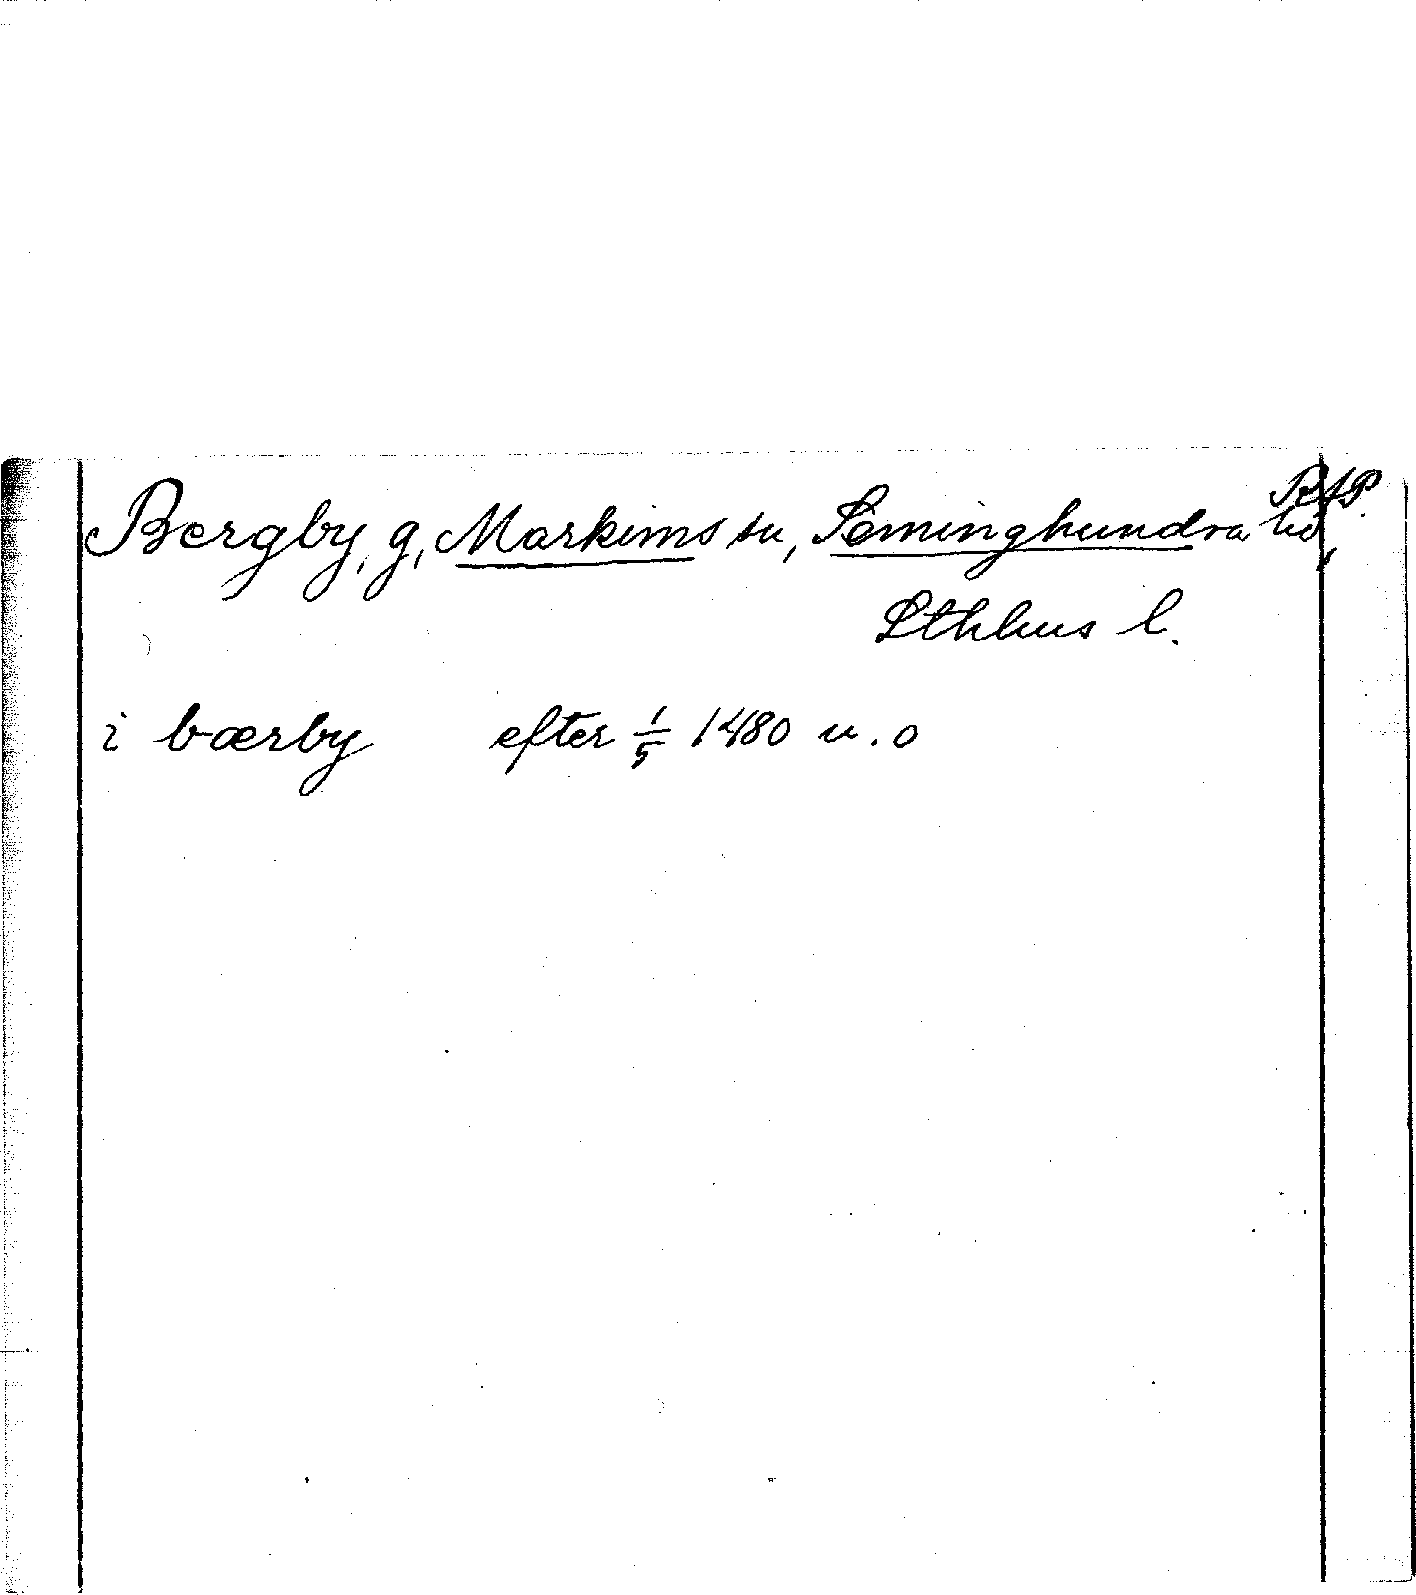 RAP.
Bergby, g, Markims sn, Seminghundra hd,
Sthlms l.
i bærby efter 1/5 1480 u.o